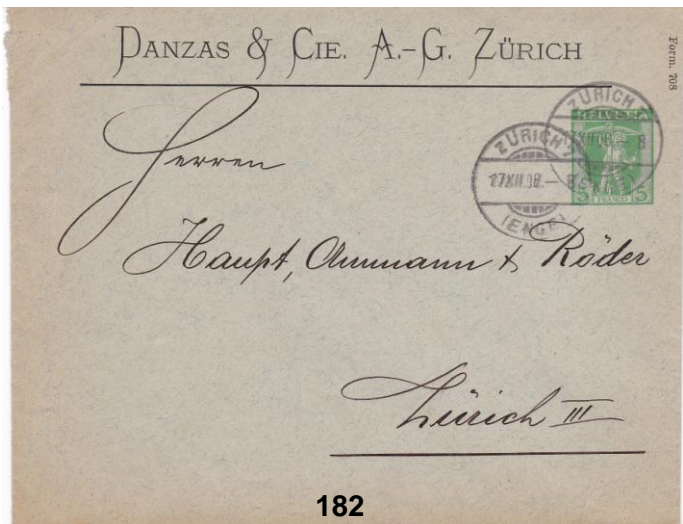 DANZAS & CIE. A.-G. ZÜRICH
Form. 708
ZÜRICH
HELVETIA
17XII08.– 8
5 FRANCO 5
ZÜRICH
17XII.08.– 8
(ENGE)
Herren
Haupt, Ammann & Röder
Zürich III
182